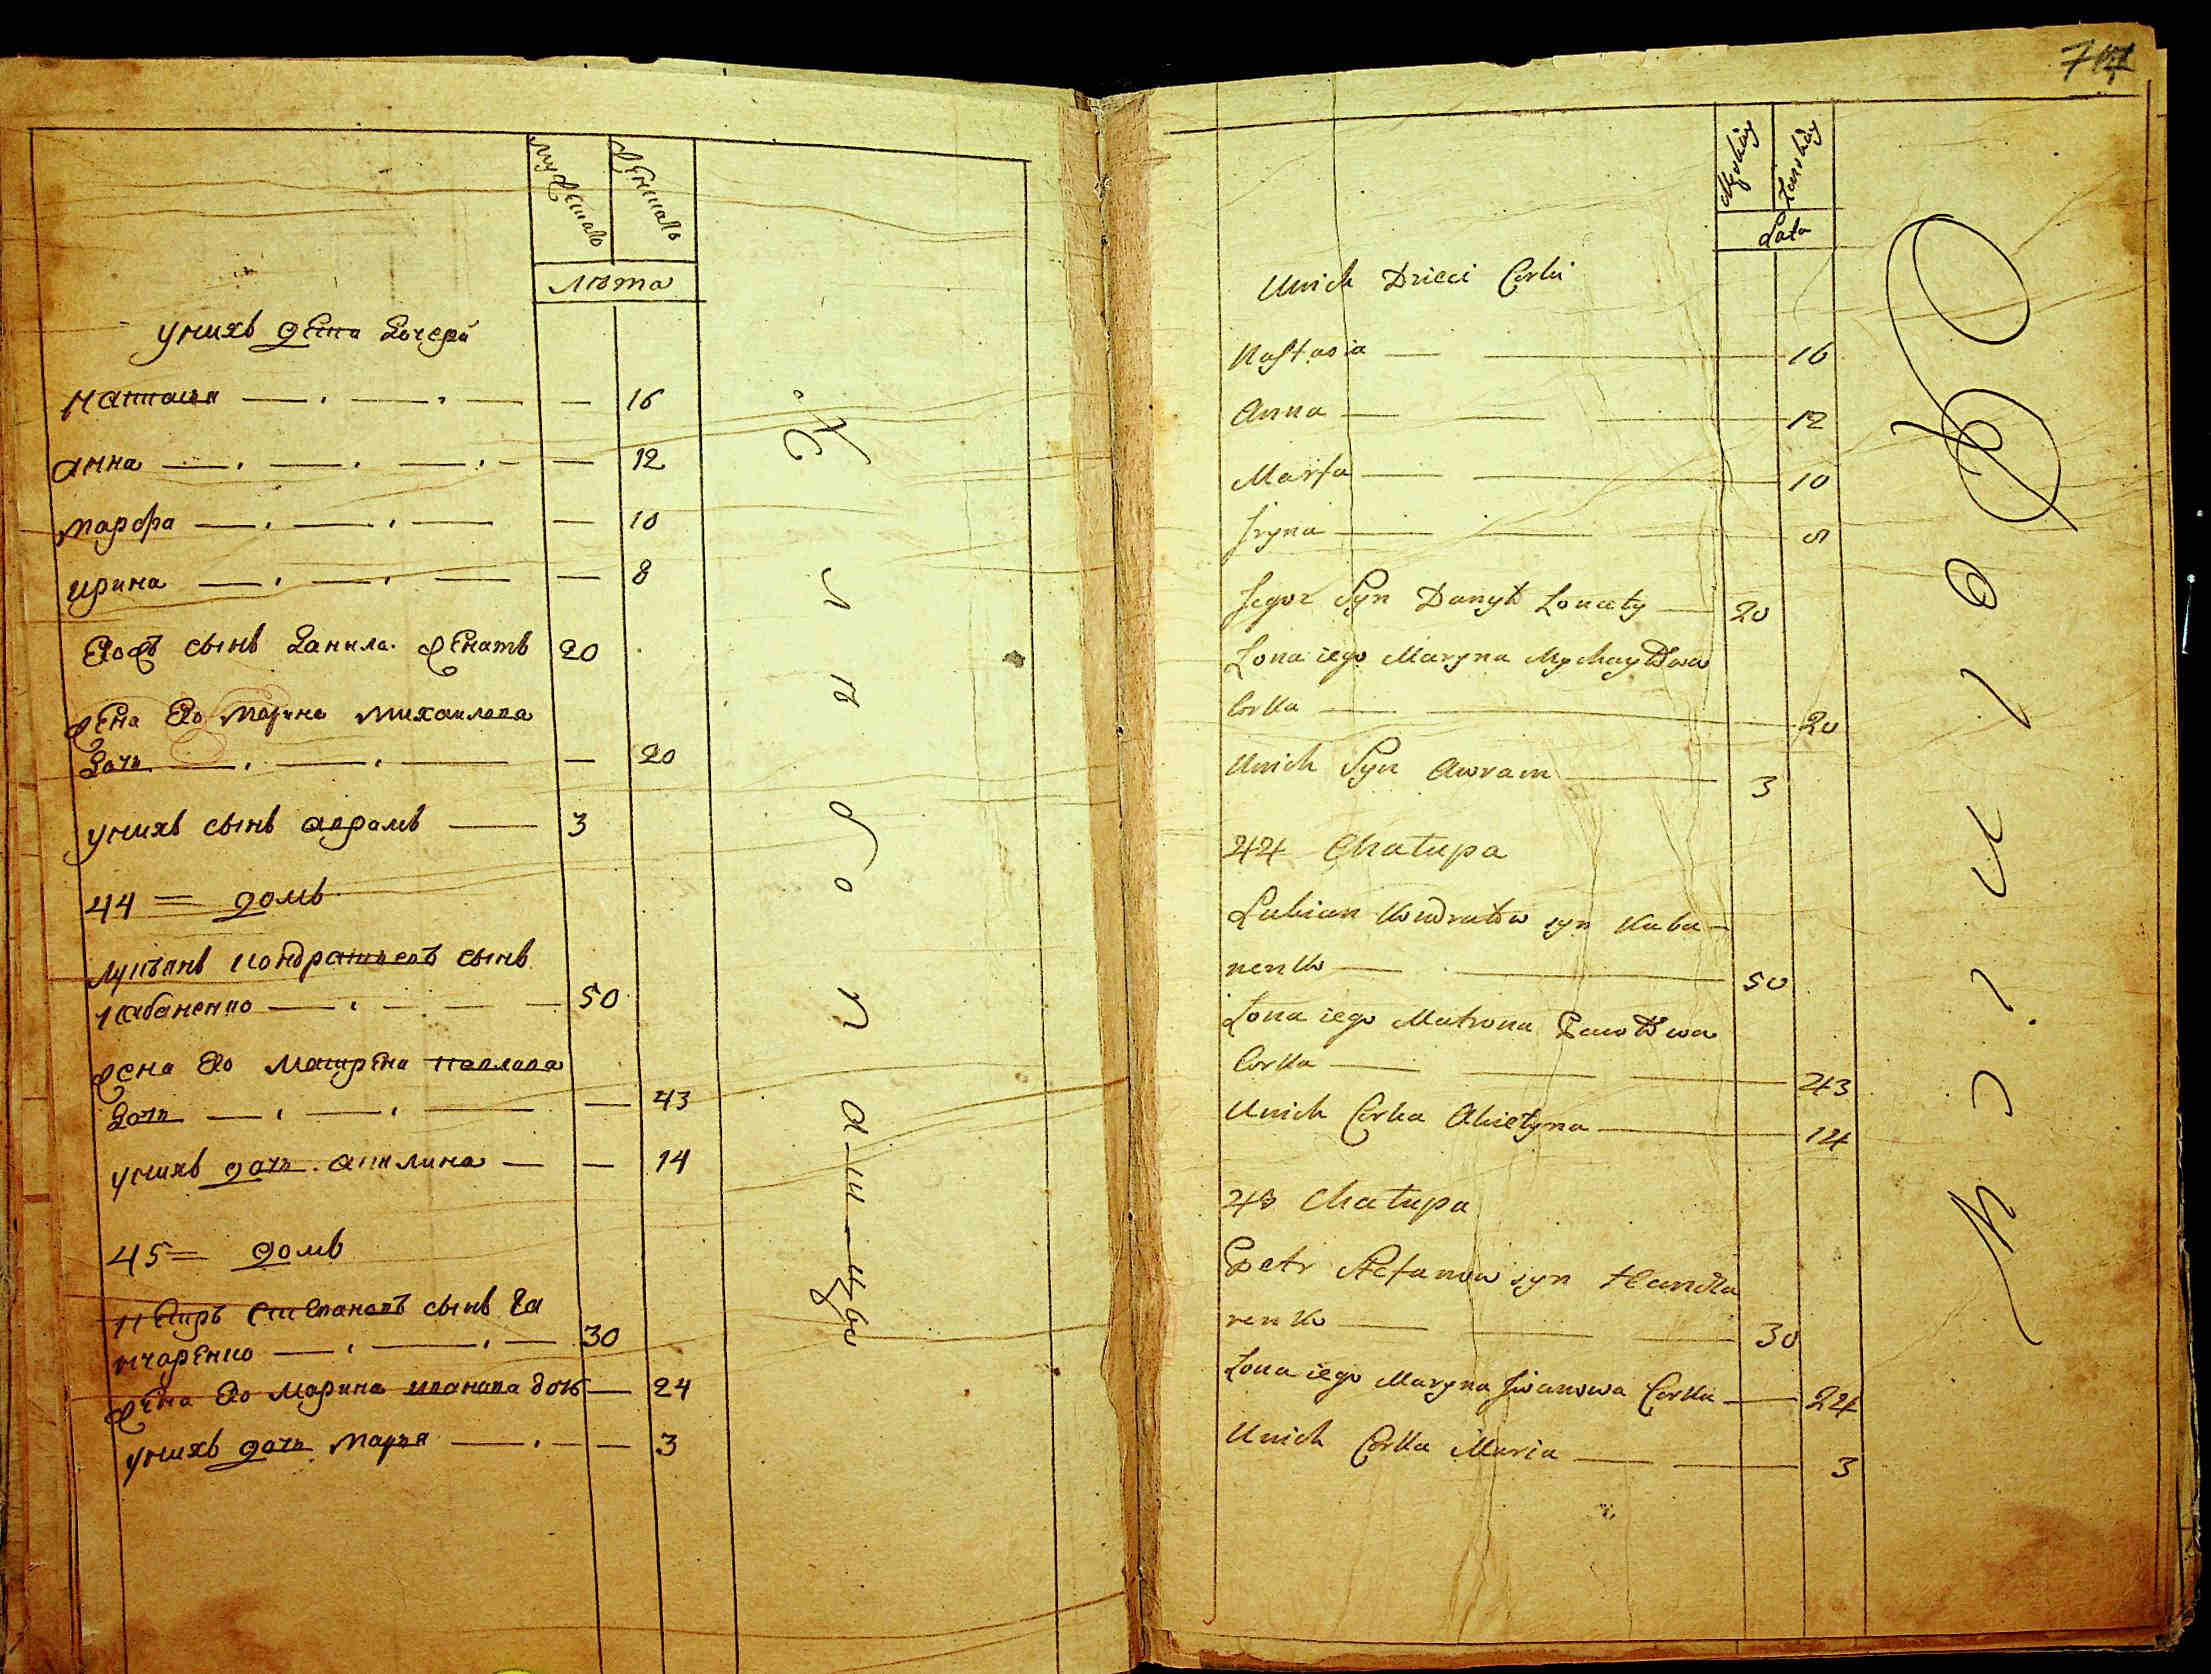 мужеска
женска
лѣта
у них дети дочери
Наталя — — — — 16
анна — — — — 12
марфа — — — — 10
ирина — — — — 8
Его же сынъ Данила женатъ 20
жена Его Марина Михаилова
дочь — — — — 20
у нихъ сынъ аврамъ — 3
44 = домъ
Лукъянъ Кондратьевъ сынъ
Кабаненко — — — 50
жена Его Матрена Павлова
дочь — — — — 43
у нихъ дочь акилина — — 14
45 = домъ
Петръ Степановъ сынъ Го
нчаренко — — — 30
жена Его Марина Иванова дочь — 24
у нихъ дочь Марья — — — 3
Męskiey
Żenskiey
Lata
Unich Dzieci Corki
Nastasia — — 16
Anna — — — 12
Marfa — — 10
Iryna — — — 8
Jegoż Syn Danyło Żonaty — 20
Żona iego Maryna Mychayłowa
Corka — — 20
Unich Syn Awram — 3
44 Chałupa
Łukian Kondratow syn Kaba-
nenko — — 50
Żona iego Matrona Pawłowa
Corka — — — 43
Unich Corka Akielyna — 14
45 Chałupa
Petr Stefanow syn Honcza
renko — — — 30
Żona iego Maryna Iwanowa Corka — 24
Unich Corka Maria — — 3